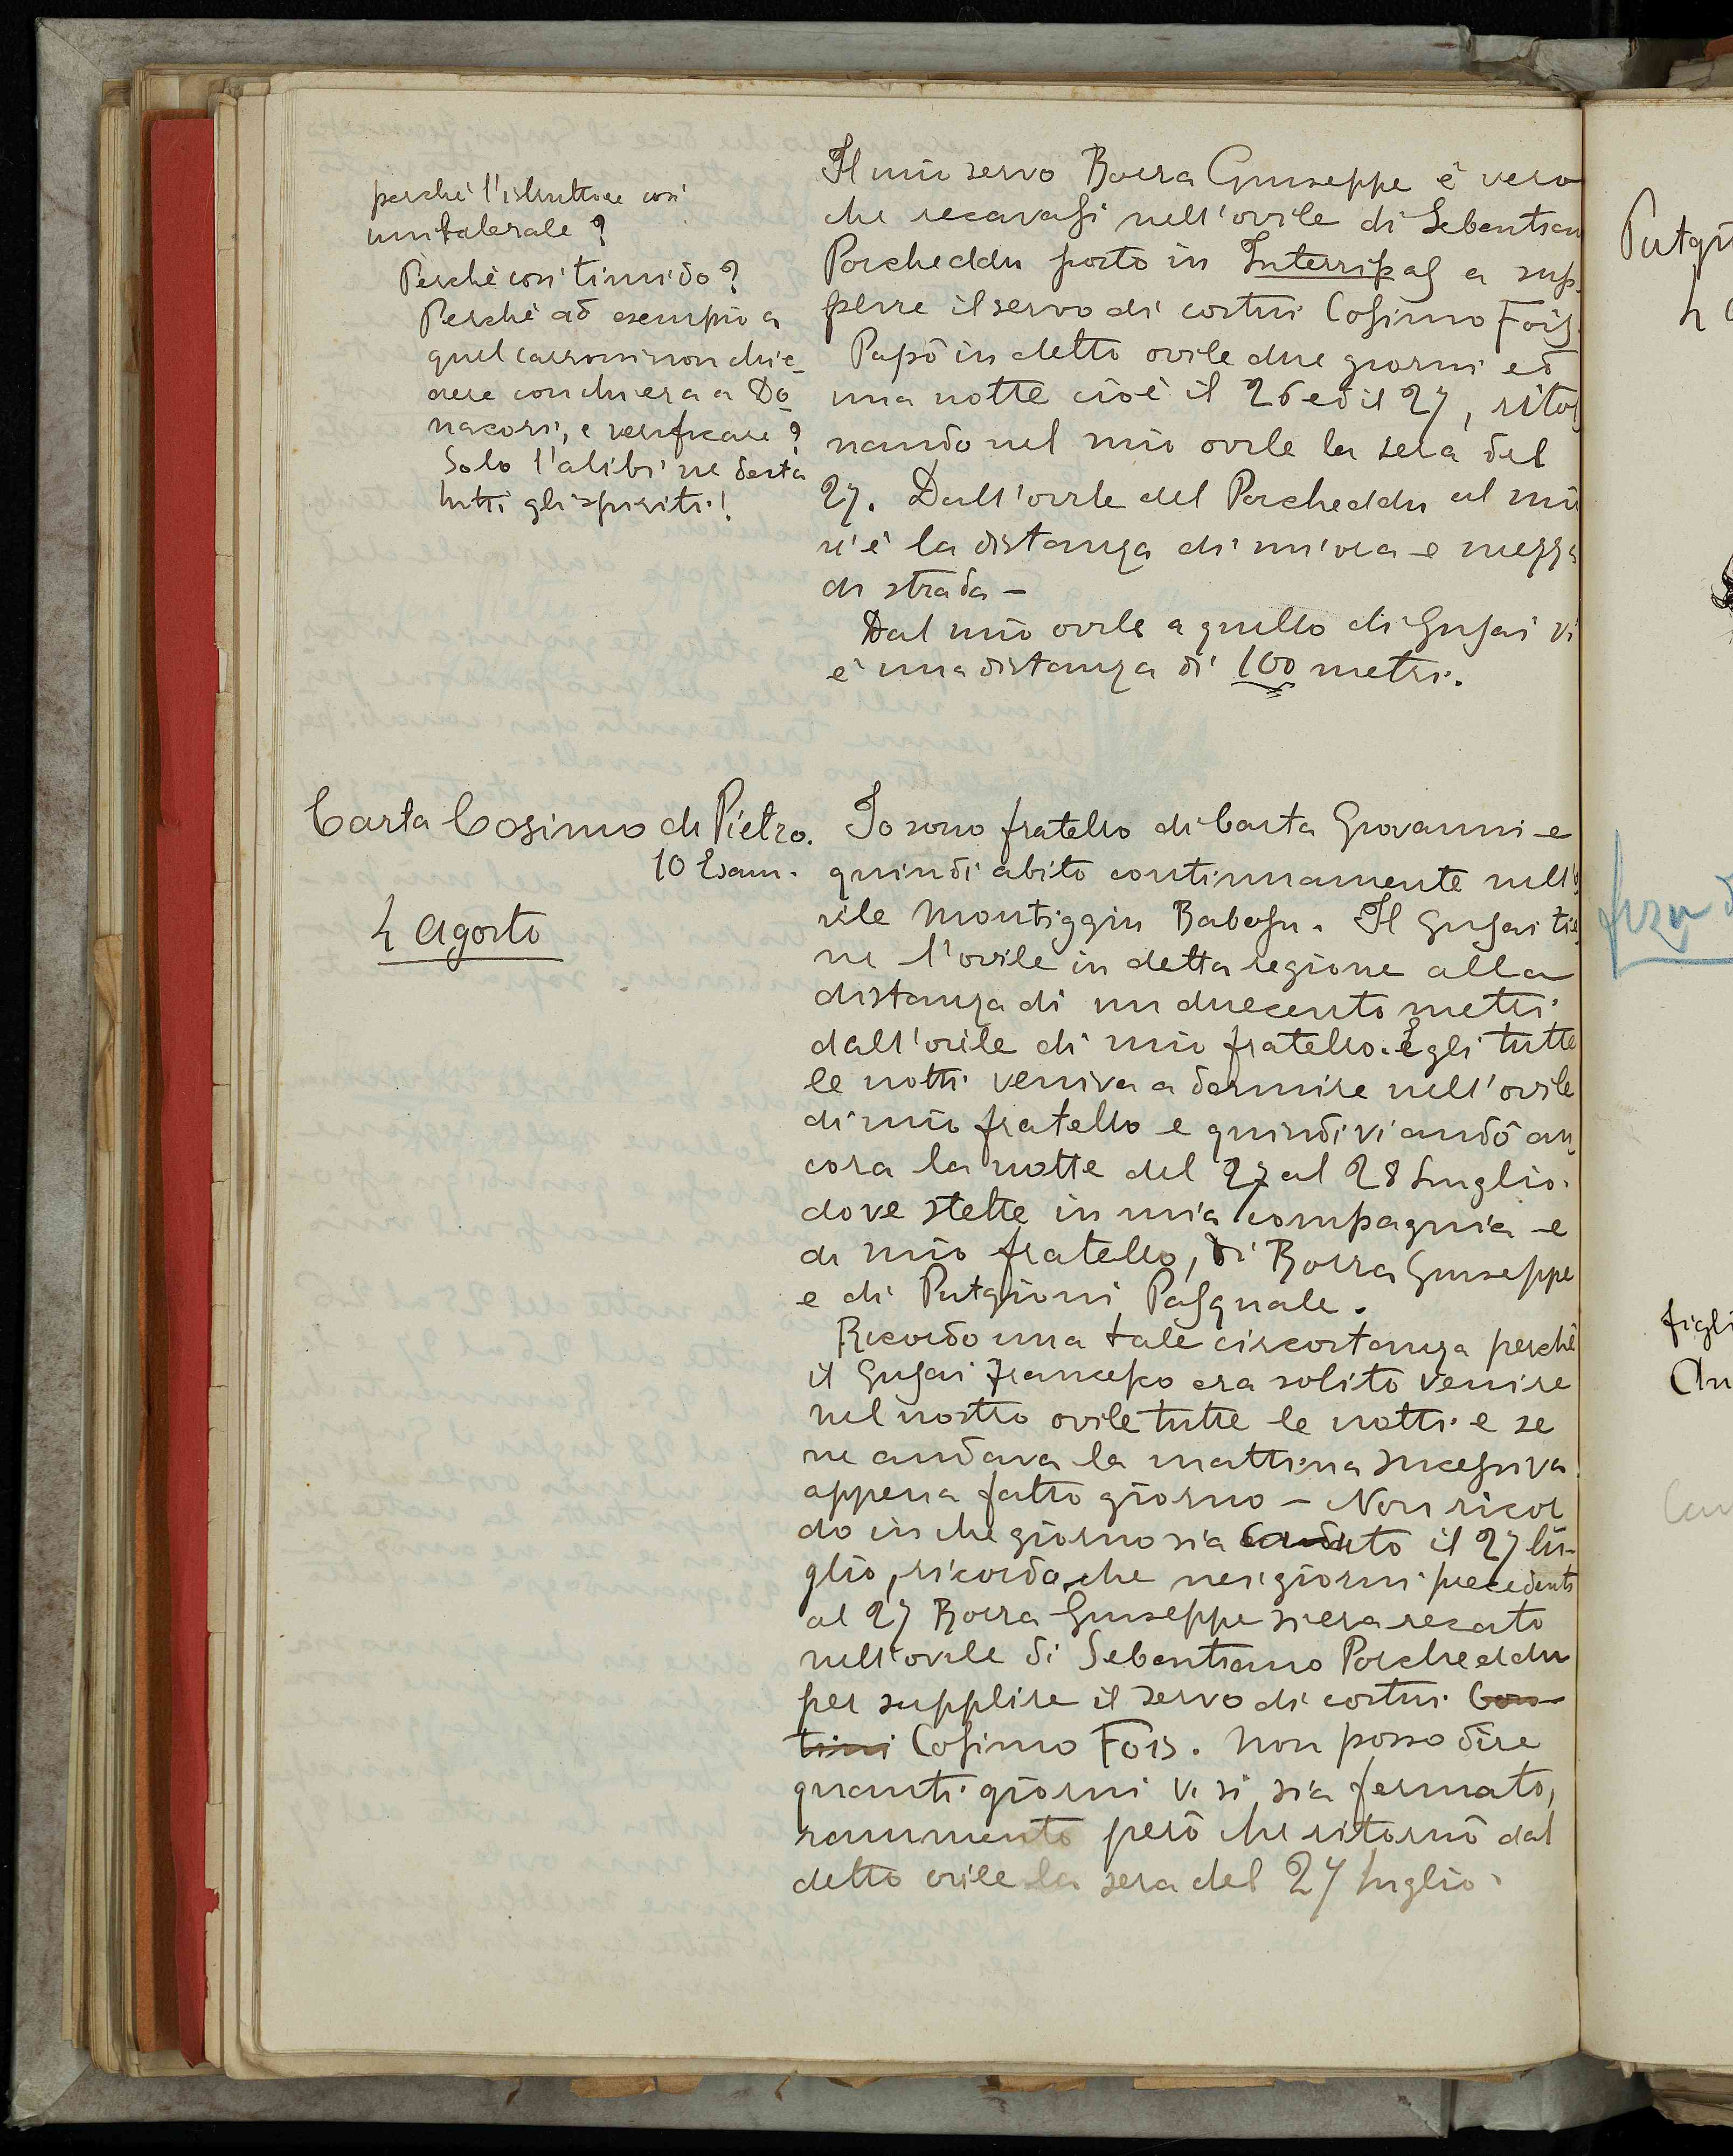 perchè l'istruttore così
unilaterale?
Perchè così timido?
Perchè ad esempio a
quel non chie-
dere con chi era a Do-
nacori, e verificare?
Solo l'alibi ne desta
tutti gli spiriti!
Il mio servo Boera Giuseppe è vero
che recavasi nell'ovile di Sebastian
Porcheddu posto in Interripas a sup-
plire il servo di costui Cosimo Fois.
Passò in detto ovile due giorni ed
una notte cioè il 26 ed il 27, ritor
nando nel mio ovile la sera del
27. Dall'ovile del Porcheddu al mio
vi è la distanza di un'ora e mezza
di strada -
Dal mio ovile a quello di Gusai vi
è una distanza di 100 metri.
Carta Cosimo di Pietro.
10 Esam.
4 Agosto
Io sono fratello di Carta Giovanni e
quindi abito continuamente nell'o
vile Montiggiu Babosu. Il Gusai tie
ne l'ovile in detta regione alla
distanza di un duecento metri
dall'ovile di mio fratello. Egli tutte
le notti veniva a dormire nell'ovile
di mio fratello e quindi vi andò an
cora la notte del 27 al 28 Luglio.
dove stette in mia compagnia e
di mio fratello, di Boera Giuseppe
e di Putgioni Pasquale.
Ricordo una tale circostanza perchè
il Gusai Francesco era solito venire
nel nostro ovile tutte le notti e se
ne andava la mattina successiva
appena fatto giorno - Non ricor
do in che giorno sia caduto il 27 lu-
glio, ricordo che nei giorni precedenti
al 27 Boera Giuseppe si era recato
nell'ovile di Sebastiano Porcheddu
per supplire il servo di costui Con-
tini Cosimo Fois. Non posso dire
quanti giorni vi si sia fermato,
rammento però che ritornò dal
detto ovile la sera del 27 luglio.
figli